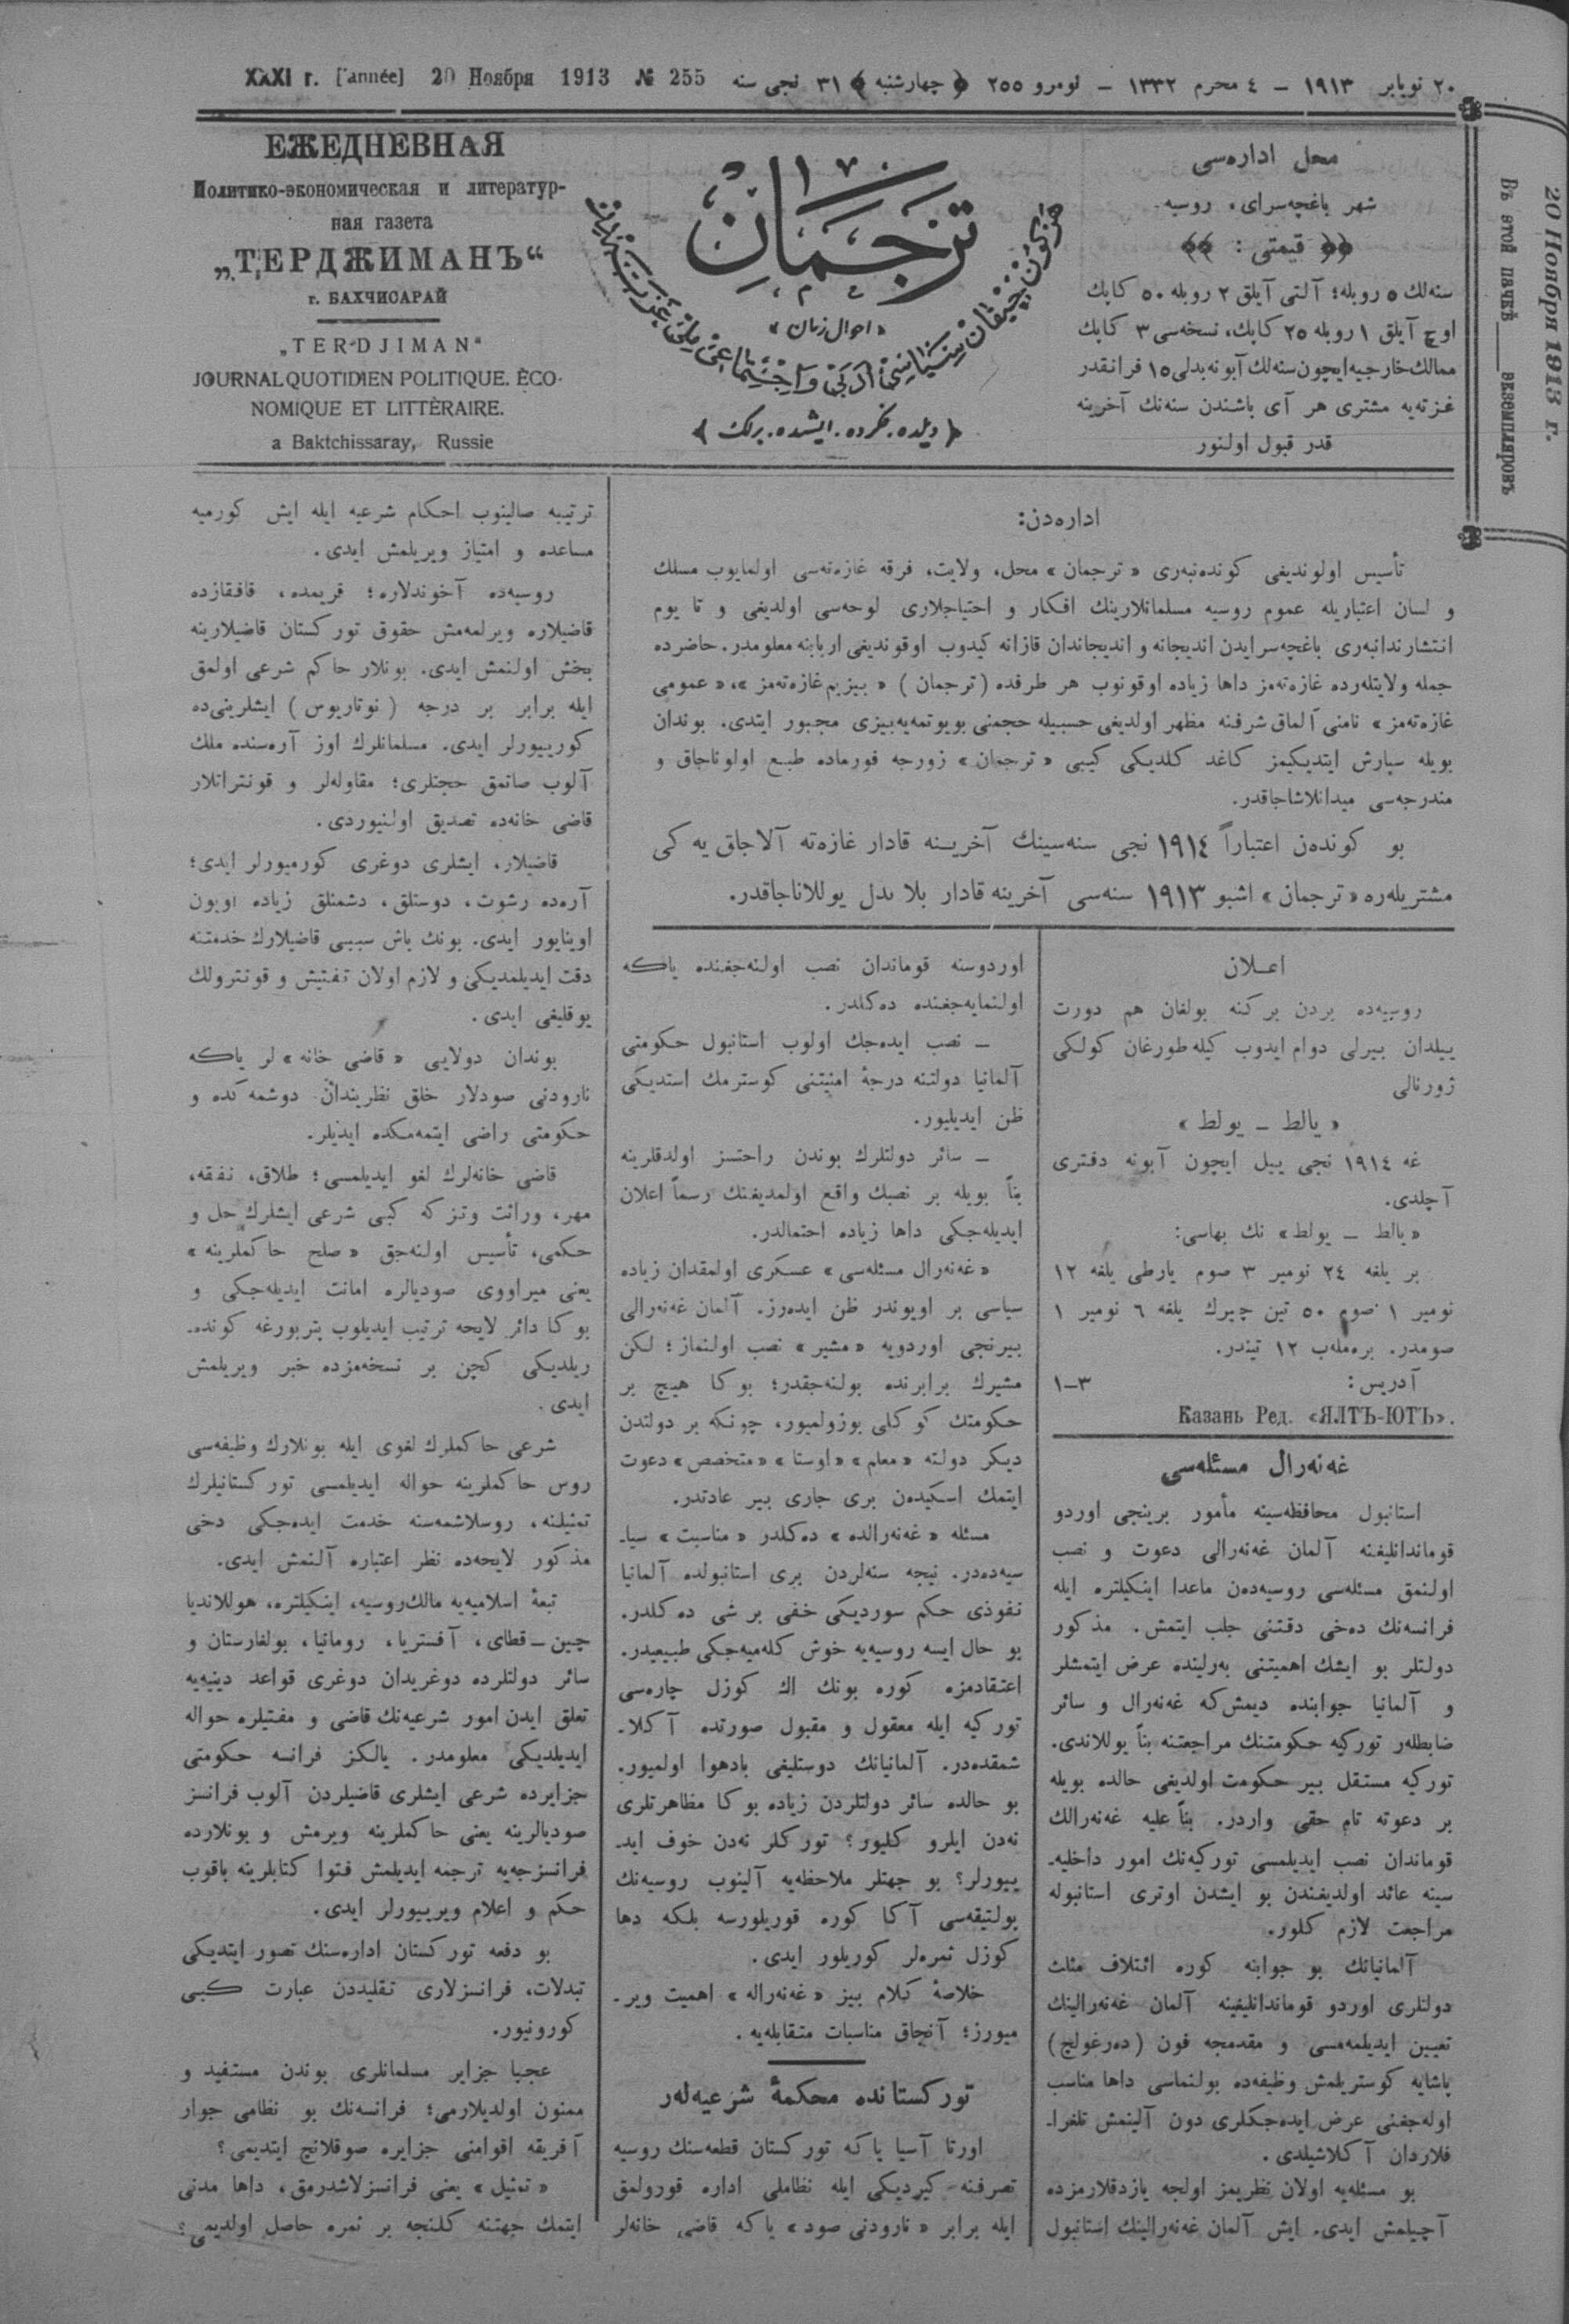 XXXI г. [année] 20 Ноября 1913 № 255
٢٠ نویابر ١٩١٣ – ٤ محرم ١٣٣٢ – نومرو ٢٥٥ ﴿ چهارشنبه ﴾ ٣١ نجی سنه
20 Ноября 1913 г.
Въ этой пачкѣ ____ экземпляровъ
ЕЖЕДНЕВНАЯ
Политико-экономическая и литератур-
ная газета
„ТЕРДЖИМАНЪ“
г. БАХЧИСАРАЙ
„TERDJIMAN“
JOURNAL QUOTIDIEN POLITIQUE. ÈCO-
NOMIQUE ET LITTÈRAIRE.
a Baktchissaray, Russie
ترجمان
«احوال زمان»
﴿ دیلده. فکرده. ایشده. برلك ﴾
محل اداره‌سی
شهر باغچه‌سرای، روسیه
﴿﴿ قیمتی: ﴾﴾
سنه‌لك ٥ روبله؛ آلتی آیلق ٢ روبله ٥٠ كاپك
اوچ آیلق ١ روبله ٢٥ كاپك، نسخه‌سی ٣ كاپك
ممالك خارجیه ایچون سنه‌لك آبونه بدلی ١٥ فرانقدر
غزته‌یه مشتری هر آی باشندن سنه‌نك آخرینه
قدر قبول اولنور
اداره‌دن:
تأسیس اولوندیغی كوندنبه‌ری «ترجمان» محل، ولایت، فرقه غازه‌ته‌سی اولمایوب مسلك
و لسان اعتباریله عموم روسیه مسلمانلارینك افكار و احتیاجلاری لوحه‌سی اولدیغی و تا یوم
انتشارندانبه‌ری باغچه‌سرایدن اندیجانه و اندیجاندان قازانه كیدوب اوقوندیغی اربابنه معلومدر. حاضرده
جمله ولایتله‌رده غازه‌ته‌مز داها زیاده اوقونوب هر طرفده (ترجمان) «بیزیم غازه‌ته‌مز»، «عمومی
غازه‌ته‌مز» نامنی آلماق شرفنه مظهر اولدیغی حسبیله حجمنی بویوتمه‌یه بیزی مجبور ایتدی. بوندان
بویله سپارش ایتدیكیمز كاغد كلدیكی كیبی «ترجمان» زورجه فورماده طبع اولوناجاق و
مندرجه‌سی میدانلاشاجاقدر.
بو كونده‌ن اعتباراً ١٩١٤ نجی سنه‌سینك آخرینه قادار غازه‌ته آلاجاق یه كی
مشتریله‌ره «ترجمان» اشبو ١٩١٣ سنه‌سی آخرینه قادار بلا بدل یوللاناجاقدر.
اعلان
روسیه‌ده بردن بر كنه بولغان هم دورت
ییلدان بیرلی دوام ایدوب كیله طورغان كولكی
ژورنالی
«یالط – یولط»
غه ١٩١٤ نجی ییل ایچون آبونه دفتری
آچلدی.
«یالط – یولط» نك بهاسی:
بر یلغه ٢٤ نومیر ٣ صوم یارطی یلغه ١٢
نومیر ١ صوم ٥٠ تین چیرك یلغه ٦ نومیر ١
صومدر. بره‌مله‌ب ١٢ تیندر.
آدریس: ٣–١
Казань Ред. «ЯЛТЪ-ЮТЪ».
غه‌نه‌رال مسئله‌سی
استانبول محافظه‌سینه مأمور برینجی اوردو
قوماندانلیغنه آلمان غه‌نه‌رالی دعوت و نصب
اولنمق مسئله‌سی روسیه‌دن ماعدا اینكیلتره ایله
فرانسه‌نك ده‌خی دقتنی جلب ایتمش. مذكور
دولتلر بو ایشك اهمیتنی به‌رلینده عرض ایتمشلر
و آلمانیا جوابنده دیمش‌كه غه‌نه‌رال و سائر
ضابطلر توركیه حكومتنك مراجعتنه بناً یوللاندی.
توركیه مستقل بیر حكومت اولدیغی حالده بویله
بر دعوته تام حقی واردر. بناً علیه غه‌نه‌رالك
قوماندان نصب ایدیلمسی توركیه‌نك امور داخلیه‌ـ
سینه عائد اولدیغندن بو ایشدن اوتری استانبوله
مراجعت لازم كلور.
آلمانیانك بو جوابنه كوره ائتلاف مثلث
دولتلری اوردو قوماندانلیغینه آلمان غه‌نه‌رالینك
تعیین ایدیلمه‌مسی و مقدمجه فون (ده‌رغولچ)
پاشایه كوستریلمش وظیفه‌ده بولنماسی داها مناسب
اوله‌جغنی عرض ایده‌جكلری دون آلینمش تلغراـ
فلاردان آكلاشیلدی.
بو مسئله‌یه اولان نظریمز اولجه یازدقلارمزده
آچیلمش ایدی. ایش آلمان غه‌نه‌رالینك استانبول
اوردوسنه قوماندان نصب اولنه‌جغنده یاكه
اولنمایه‌جغنده ده‌كلدر.
– نصب ایده‌جك اولوب استانبول حكومتی
آلمانیا دولتنه درجۀ امنیتنی كوسترمك استدیكی
ظن ایدیلیور.
– سائر دولتلرك بوندن راحتسز اولدقلرینه
بناً بویله بر نصبك واقع اولمدیغنك رسماً اعلان
ایدیله‌جكی داها زیاده احتمالدر.
«غه‌نه‌رال مسئله‌سی» عسكری اولمقدان زیاده
سیاسی بر اویوندر ظن ایده‌رز. آلمان غه‌نه‌رالی
بیرنجی اوردویه «مشیر» نصب اولنماز؛ لكن
مشیرك برابرنده بولنه‌جقدر؛ بوكا هیچ بر
حكومتك كوكلی بوزولمیور، چونكه بر دولتدن
دیكر دولته «معلم» «اوستا» «متخصص» دعوت
ایتمك اسكیدن بری جاری بیر عادتدر.
مسئله «غه‌نه‌رالده» ده‌كلدر «مناسبت» سیاـ
سیه‌ده‌در. نیجه سنه‌لردن بری استانبولده آلمانیا
نفوذی حكم سوردیكی خفی بر شی ده‌كلدر.
بو حال ایسه روسیه‌یه خوش كله‌میه‌جكی طبیعیدر.
اعتقادمزه كوره بونك اك كوزل چاره‌سی
توركیه ایله معقول و مقبول صورتده آكلاـ
شمقده‌در. آلمانیانك دوستلیغی بادهوا اولمیور.
بو حالده سائر دولتلردن زیاده بوكا مظاهرتلری
نه‌دن ایلرو كلیور؟ توركلر نه‌دن خوف ایدـ
ییورلر؟ بو جهتلر ملاحظه‌یه آلینوب روسیه‌نك
پولتیقه‌سی آكا كوره قوریلورسه بلكه دها
كوزل ثمره‌لر كوریلور ایدی.
خلاصۀ كلام بیز «غه‌نه‌راله» اهمیت ویرـ
میورز؛ آنجاق مناسبات متقابله‌یه.
توركستانده محكمۀ شرعیه‌لر
اورتا آسیا یاكه توركستان قطعه‌سنك روسیه
تصرفنه كیردیكی ایله نظاملی اداره قورولمق
ایله برابر «نارودنی صود» یاكه قاضی خانه‌لر
ترتیبه صالینوب احكام شرعیه ایله ایش كورمیه
مساعده و امتیاز ویریلمش ایدی.
روسیه‌ده آخوندلاره؛ قریمده، قافقازده
قاضیلاره ویرلمه‌مش حقوق توركستان قاضیلارینه
بخش اولنمش ایدی. بونلار حاكم شرعی اولمق
ایله برابر بر درجه (نوتاریوس) ایشلرینی‌ده
كورییورلر ایدی. مسلمانلرك اوز آره‌سنده ملك
آلوب صاتمق حجتلری؛ مقاوله‌لر و قونتراتلار
قاضی خانه‌ده تصدیق اولنیوردی.
قاضیلار، ایشلری دوغری كورمیورلر ایدی؛
آره‌ده رشوت، دوستلق، دشمنلق زیاده اویون
اوینایور ایدی. بونك باش سببی قاضیلارك خدمتنه
دقت ایدیلمدیكی و لازم اولان تفتیش و قونترولك
یوقلیغی ایدی.
بوندان دولایی «قاضی خانه» لر یاكه
نارودنی صودلار خلق نظریندان دوشمه‌كده و
حكومتی راضی ایتمه‌مكده ایدیلر.
قاضی خانه‌لرك لغو ایدیلمسی؛ طلاق، نفقه،
مهر، وراثت وتركه كبی شرعی ایشلرك حل و
حكمی، تأسیس اولنه‌جق «صلح حاكملرینه»
یعنی میراووی صودیالره امانت ایدیله‌جكی و
بوكا دائر لایحه ترتیب ایدیلوب پتربورغه كوندهـ
ریلدیكی كچن بر نسخه‌مزده خبر ویریلمش
ایدی.
شرعی حاكملرك لغوی ایله بونلارك وظیفه‌سی
روس حاكملرینه حواله ایدیلمسی توركستانیلرك
تمثیلنه، روسلاشمه‌سنه خدمت ایده‌جكی دخی
مذكور لایحه‌ده نظر اعتباره آلنمش ایدی.
تبعۀ اسلامیه‌یه مالك روسیه، اینكیلتره، هوللاندیا
چین–قطای، آفستریا، رومانیا، بولغارستان و
سائر دولتلرده دوغریدان دوغری قواعد دینیه‌یه
تعلق ایدن امور شرعیه‌نك قاضی و مفتیلره حواله
ایدیلدیكی معلومدر. یالكز فرانسه حكومتی
جزایرده شرعی ایشلری قاضیلردن آلوب فرانسز
صودیالرینه یعنی حاكملرینه ویرمش و بونلارده
فرانسزجه‌یه ترجمه ایدیلمش فتوا كتابلرینه باقوب
حكم و اعلام ویرییورلر ایدی.
بو دفعه توركستان اداره‌سنك تصور ایتدیكی
تبدلات، فرانسزلاری تقلیددن عبارت كبی
كورونیور.
عجبا جزایر مسلمانلری بوندن مستفید و
ممنون اولدیلارمی؛ فرانسه‌نك بو نظامی جوار
آفریقه اقوامنی جزایره صوقلانج ایتدیمی؟
«تمثیل» یعنی فرانسزلاشدرمق، داها مدنی
ایتمك جهتنه كلنجه بر ثمره حاصل اولدیمی؟